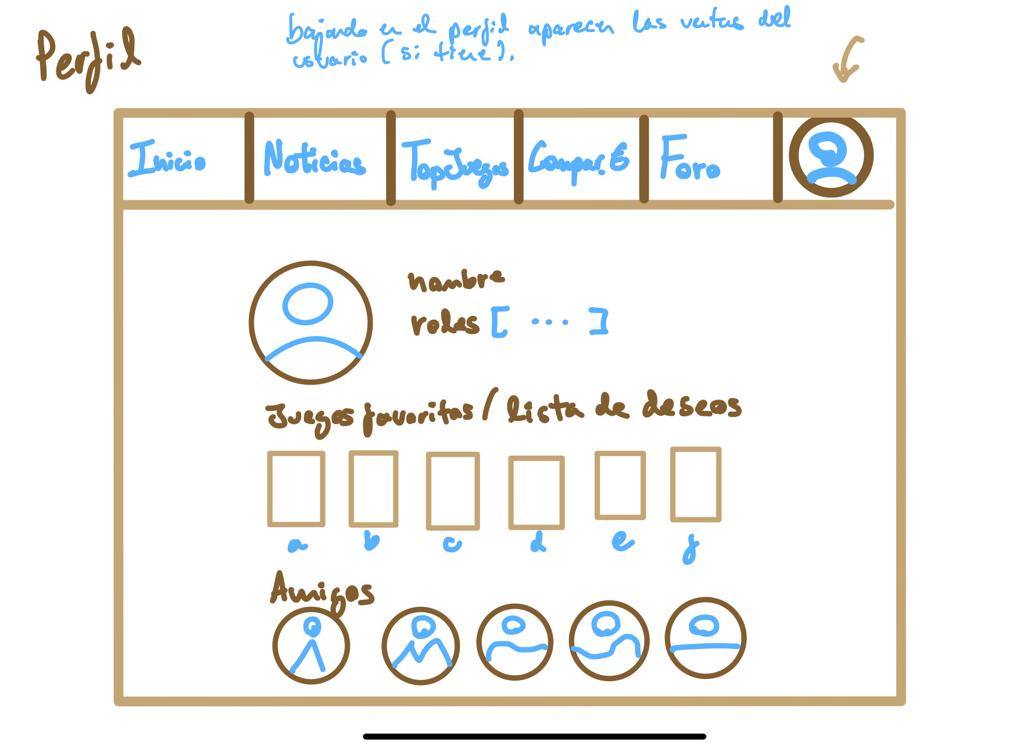 Perfil
bajando en el perfil aparecen las ventas del
usuario (si tiene).
Inicio
Noticias
TopJuegos
Foro
nombre
roles [ ... ]
Juegos favoritas / lista de deseos
a b c d e f
Amigos